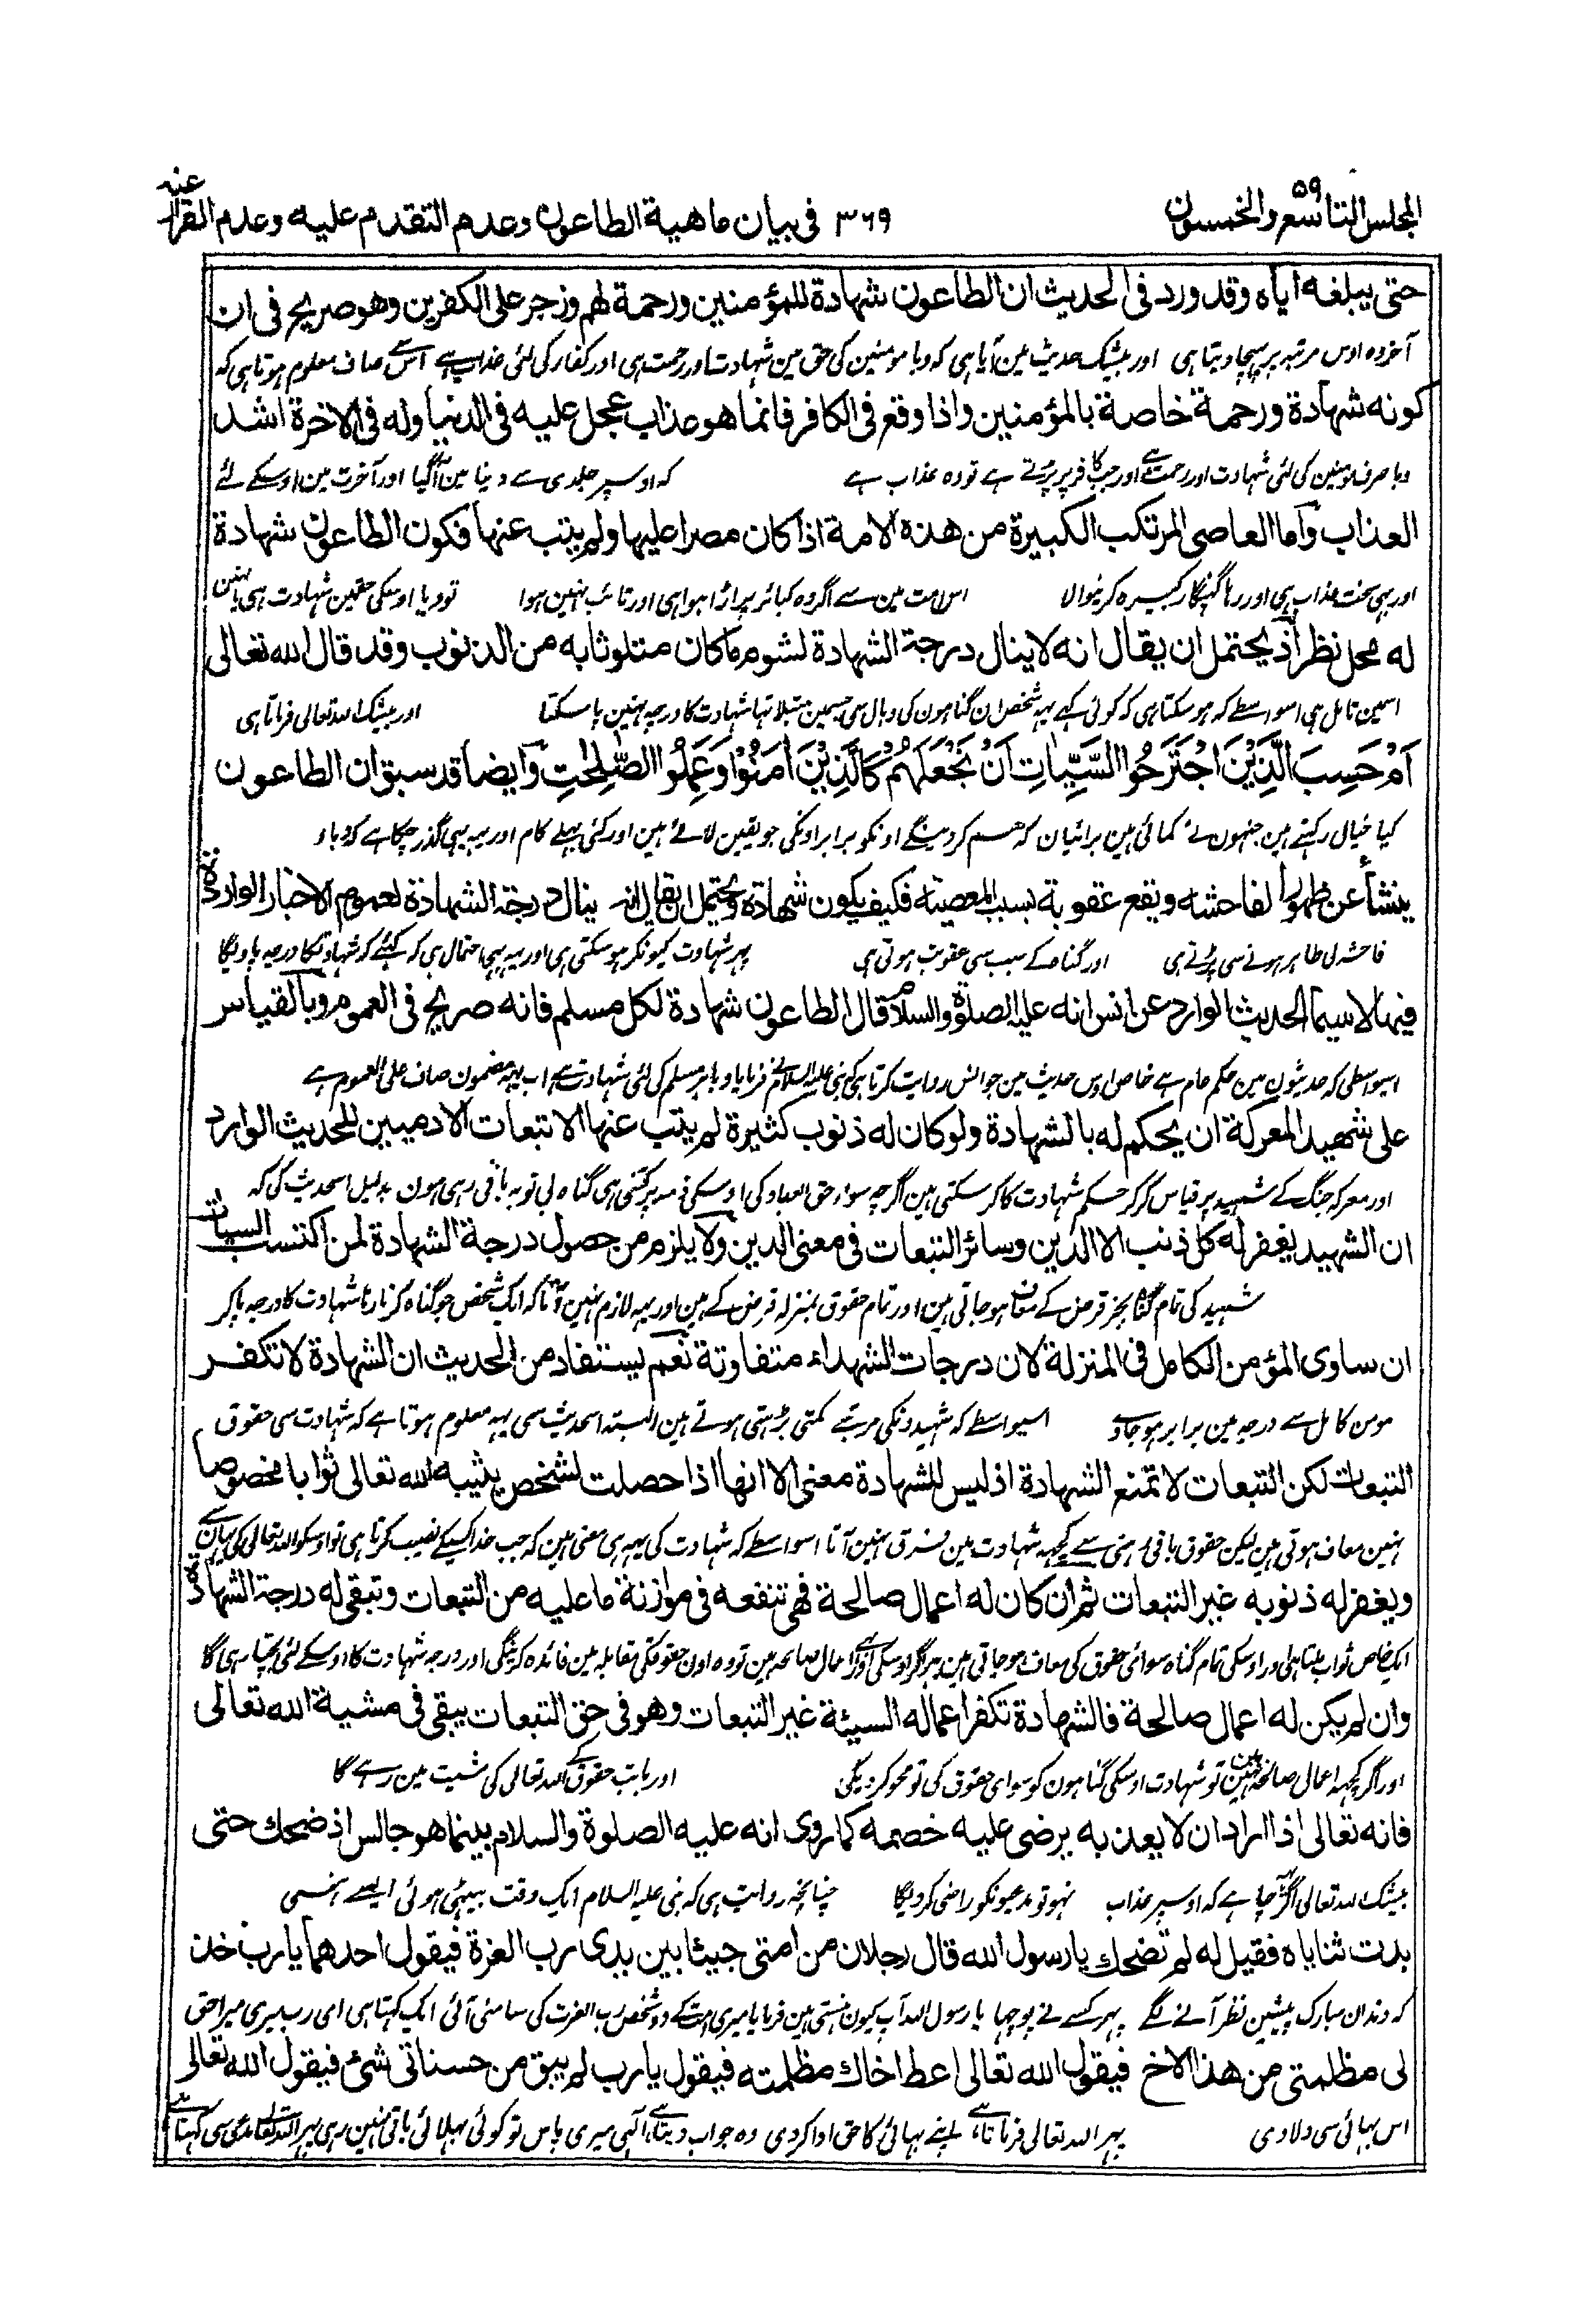 المجلس التاسع والخمسون ۵۹
۳۶۹ فى بيان ماهية الطاعون وعدم التقدم عليه وعدم الفرار عنه
حتى يبلغه اياه وقد ورد فى الحديث ان الطاعون شهادة للمؤمنين ورحمة لهم وزجر على الكفرين وهو صريح فى ان
آخر وہ اوس مرتبہ پر پہنچا دیتا ہی اور بیشک حدیث مین آیا ہی کہ وبا مومنین کی حق مین شہادت اور رحمت ہی اور کفار کی لئی عذاب ہے اس سے صاف معلوم ہوتا ہی کہ
كونه شهادة ورحمة خاصة بالمؤمنين واذا وقع فى الكافر فانما هو عذاب عجل عليه فى الدنيا وله فى الاخرة اشد
وبا صرف مومنین کی لئی شہادت اور رحمت ہے اور جب کافر پر پڑتے ہے تو وہ عذاب ہے کہ اوسپر جلدی سے دنیا مین آگیا اور آخرت مین اوسکے لئے
العذاب واما العاصى المرتكب الكبيرة من هذه الامة اذا كان مصرا عليها ولم يتب عنها فكون الطاعون شهادة
اور بہی سخت عذاب ہی اور رہا گنہگار کبیرہ کرنیوالا اس امت مین سے اگر وہ کبائر پر اڑا ہوا ہی اور تائب نہین ہوا تو وبا اوسکی حقمین شہادت ہی یا نہین
له محل نظر اذ يحتمل ان يقال انه لا ينال درجة الشهادة لشوم ما كان متلوثا به من الذنوب وقد قال الله تعالى
اسمین تامل ہی اسواسطے کہ ہو سکتا ہی کہ کوئی کہے یہہ شخص ان گناہون کی وبال سی جسمین مبتلا تہا شہادت کا درجہ نہین پا سکتا اور بیشک اللہ تعالی فرماتا ہی
اَمْ حَسِبَ الَّذِيْنَ اجْتَرَحُوا السَّيِّاٰتِ اَنْ نَّجْعَلَهُمْ كَالَّذِيْنَ اٰمَنُوْا وَعَمِلُوا الصّٰلِحٰتِ وايضا قد سبق ان الطاعون
کیا خیال رکہتے ہین جنہون نے کمائی ہین برائیان کہ ہم کر دینگے اونکو برابر اونکی جو یقین لائے ہین اور کئی بہلے کام اور یہہ بہی گذر چکا ہے کہ وباء
ينشأ عن ظهور الفاحشه ويقع عقوبة بسبب المعصية فكيف يكون شهادة ويحتمل ان يقال انه ينال درجة الشهادة لعموم الاخبار الواردة
فاحشہ کی ظاہر ہونے سی پڑتے ہی اور گناہ کے سبب سی عقوبت ہوتی ہی پہر شہادت کیونکر ہو سکتی ہی اور یہہ بہی احتمال ہی کہ کہئے کہ شہادت کا درجہ پاویگا
فيها لاسيما الحديث الوارد عن انس انه عليه الصلوة والسلام قال الطاعون شهادة لكل مسلم فانه صريح فى العموم وبالقياس
اسیواسطی کہ حدیثون مین حکم عام ہے خاص اوس حدیث مین جو انس روایت کرتا ہی کہ نبی علیہ السلام نے فرمایا وبا ہر مسلم کی لئی شہادت ہے اب یہہ مضمون صاف علی العموم ہے
على شهيد المعركة ان يحكم له بالشهادة ولو كان له ذنوب كثيرة لم يتب عنها الا تبعات الادميين للحديث الوارد
اور معرکہ جنگ کے شہید پر قیاس کر کر حکم شہادت کا کر سکتی ہین اگرچہ سواء حق العباد کی اوسکی ذمہ پر کتنی ہی گناہ بی توبہ باقی رہی ہون بدلیل اسحدیث کی کہ
ان الشهيد يغفر له كل ذنب الا الدين وسائر التبعات فى معنى الدين ولا يلزم من حصول درجة الشهادة لمن اكتسب السيات
شہید کی تمام گناہ بجز قرض کے معاف ہو جاتی ہین اور تمام حقوق بمنزلہ قرض کے ہین اور یہہ لازم نہین آتا کہ ایک شخص جو گناہ کرتا رہا شہادت کا درجہ پا کر
ان ساوى المؤمن الكامل فى المنزلة لان درجات الشهداء متفاوتة نعم يستفاد من الحديث ان الشهادة لا تكفر
مومن کامل سے درجہ مین برابر ہو جاوے اسیواسطے کہ شہیدونکی مرتبے کمتی بڑہتی ہوتے ہین البتہ اسحدیث سی یہہ معلوم ہوتا ہے کہ شہادت سی حقوق
التبعات لكن التبعات لا تمنع الشهادة اذ ليس للشهادة معنى الا انها اذا حصلت لشخص يثيبه الله تعالى ثوابا مخصوصا
نہین معاف ہوتی ہین لیکن حقوق باقی رہنی سے کچہہ شہادت مین فرق نہین آتا اسواسطے کہ شہادت کی یہہ ہی معنی ہین کہ جب خدا کسیکے نصیب کرتا ہی تو اوسکو اللہ تعالی کی یہان سے
ويغفر له ذنوبه غير التبعات ثم ان كان له اعمال صالحة فهى تنفعه فى موازنة ما عليه من التبعات وتبقى له درجة الشهادة
ایک خاص ثواب ملتا ہی اور اوسکی تمام گناہ سوائی حقوق کی معاف ہو جاتی ہین پہر اگر اوسکی اور اعمال صالحہ ہین تو وہ اون حقوقکی مقابلہ مین فائدہ کرینگی اور درجہ شہادت کا اوسکے لئی بچتا رہی گا
وان لم يكن له اعمال صالحة فالشهادة تكفر اعماله السيئة غير التبعات وهو فى حق التبعات يبقى فى مشية الله تعالى
اور اگر کچہہ اعمالی صالحہ نہین ہین تو شہادت اوسکی گناہون کو سوای حقوق کی تو محو کر دیگی اور بابت حقوق کے اللہ تعالی کی مشیت مین رہے گا
فانه تعالى اذا اراد ان لا يعذبه يرضى عليه خصمه كما روى انه عليه الصلوة والسلام بينما هو جالس اذ ضحك حتى
بیشک اللہ تعالی اگر چاہے کہ اوسپر عذاب نہو تو مدعیونکو راضی کر دیگا چنانچہ روایت ہی کہ نبی علیہ السلام ایک وقت بیٹہی ہوئی ایسے ہنسی
بدت ثناياه فقيل له لم تضحك يا رسول الله قال رجلان من امتى جيثا بين يدى رب العزة فيقول احدهما يا رب خذ
کہ دندان مبارک پیشین نظر آنے لگے پہر کسے نے پوچہا یا رسول اللہ آپ کیون ہنستی ہین فرمایا میری امت کے دو شخص رب العزت کی سامنی آئی ایک کہتا ہی ای رب میری میرا حق
لى مظلمتى من هذا الاخ فيقول الله تعالى اعط اخاك مظلمته فيقول يا رب لم يبق من حسناتى شئ فيقول الله تعالى
اس بہائی سی دلا دی پہر اللہ تعالی فرماتا ہے اپنے بہائی کا حق ادا کر دی وہ جواب دیتا ہے الہی میری پاس تو کوئی بہلائی باقی نہین رہی پہر اللہ تعالی مدعی سی کہتا ہے